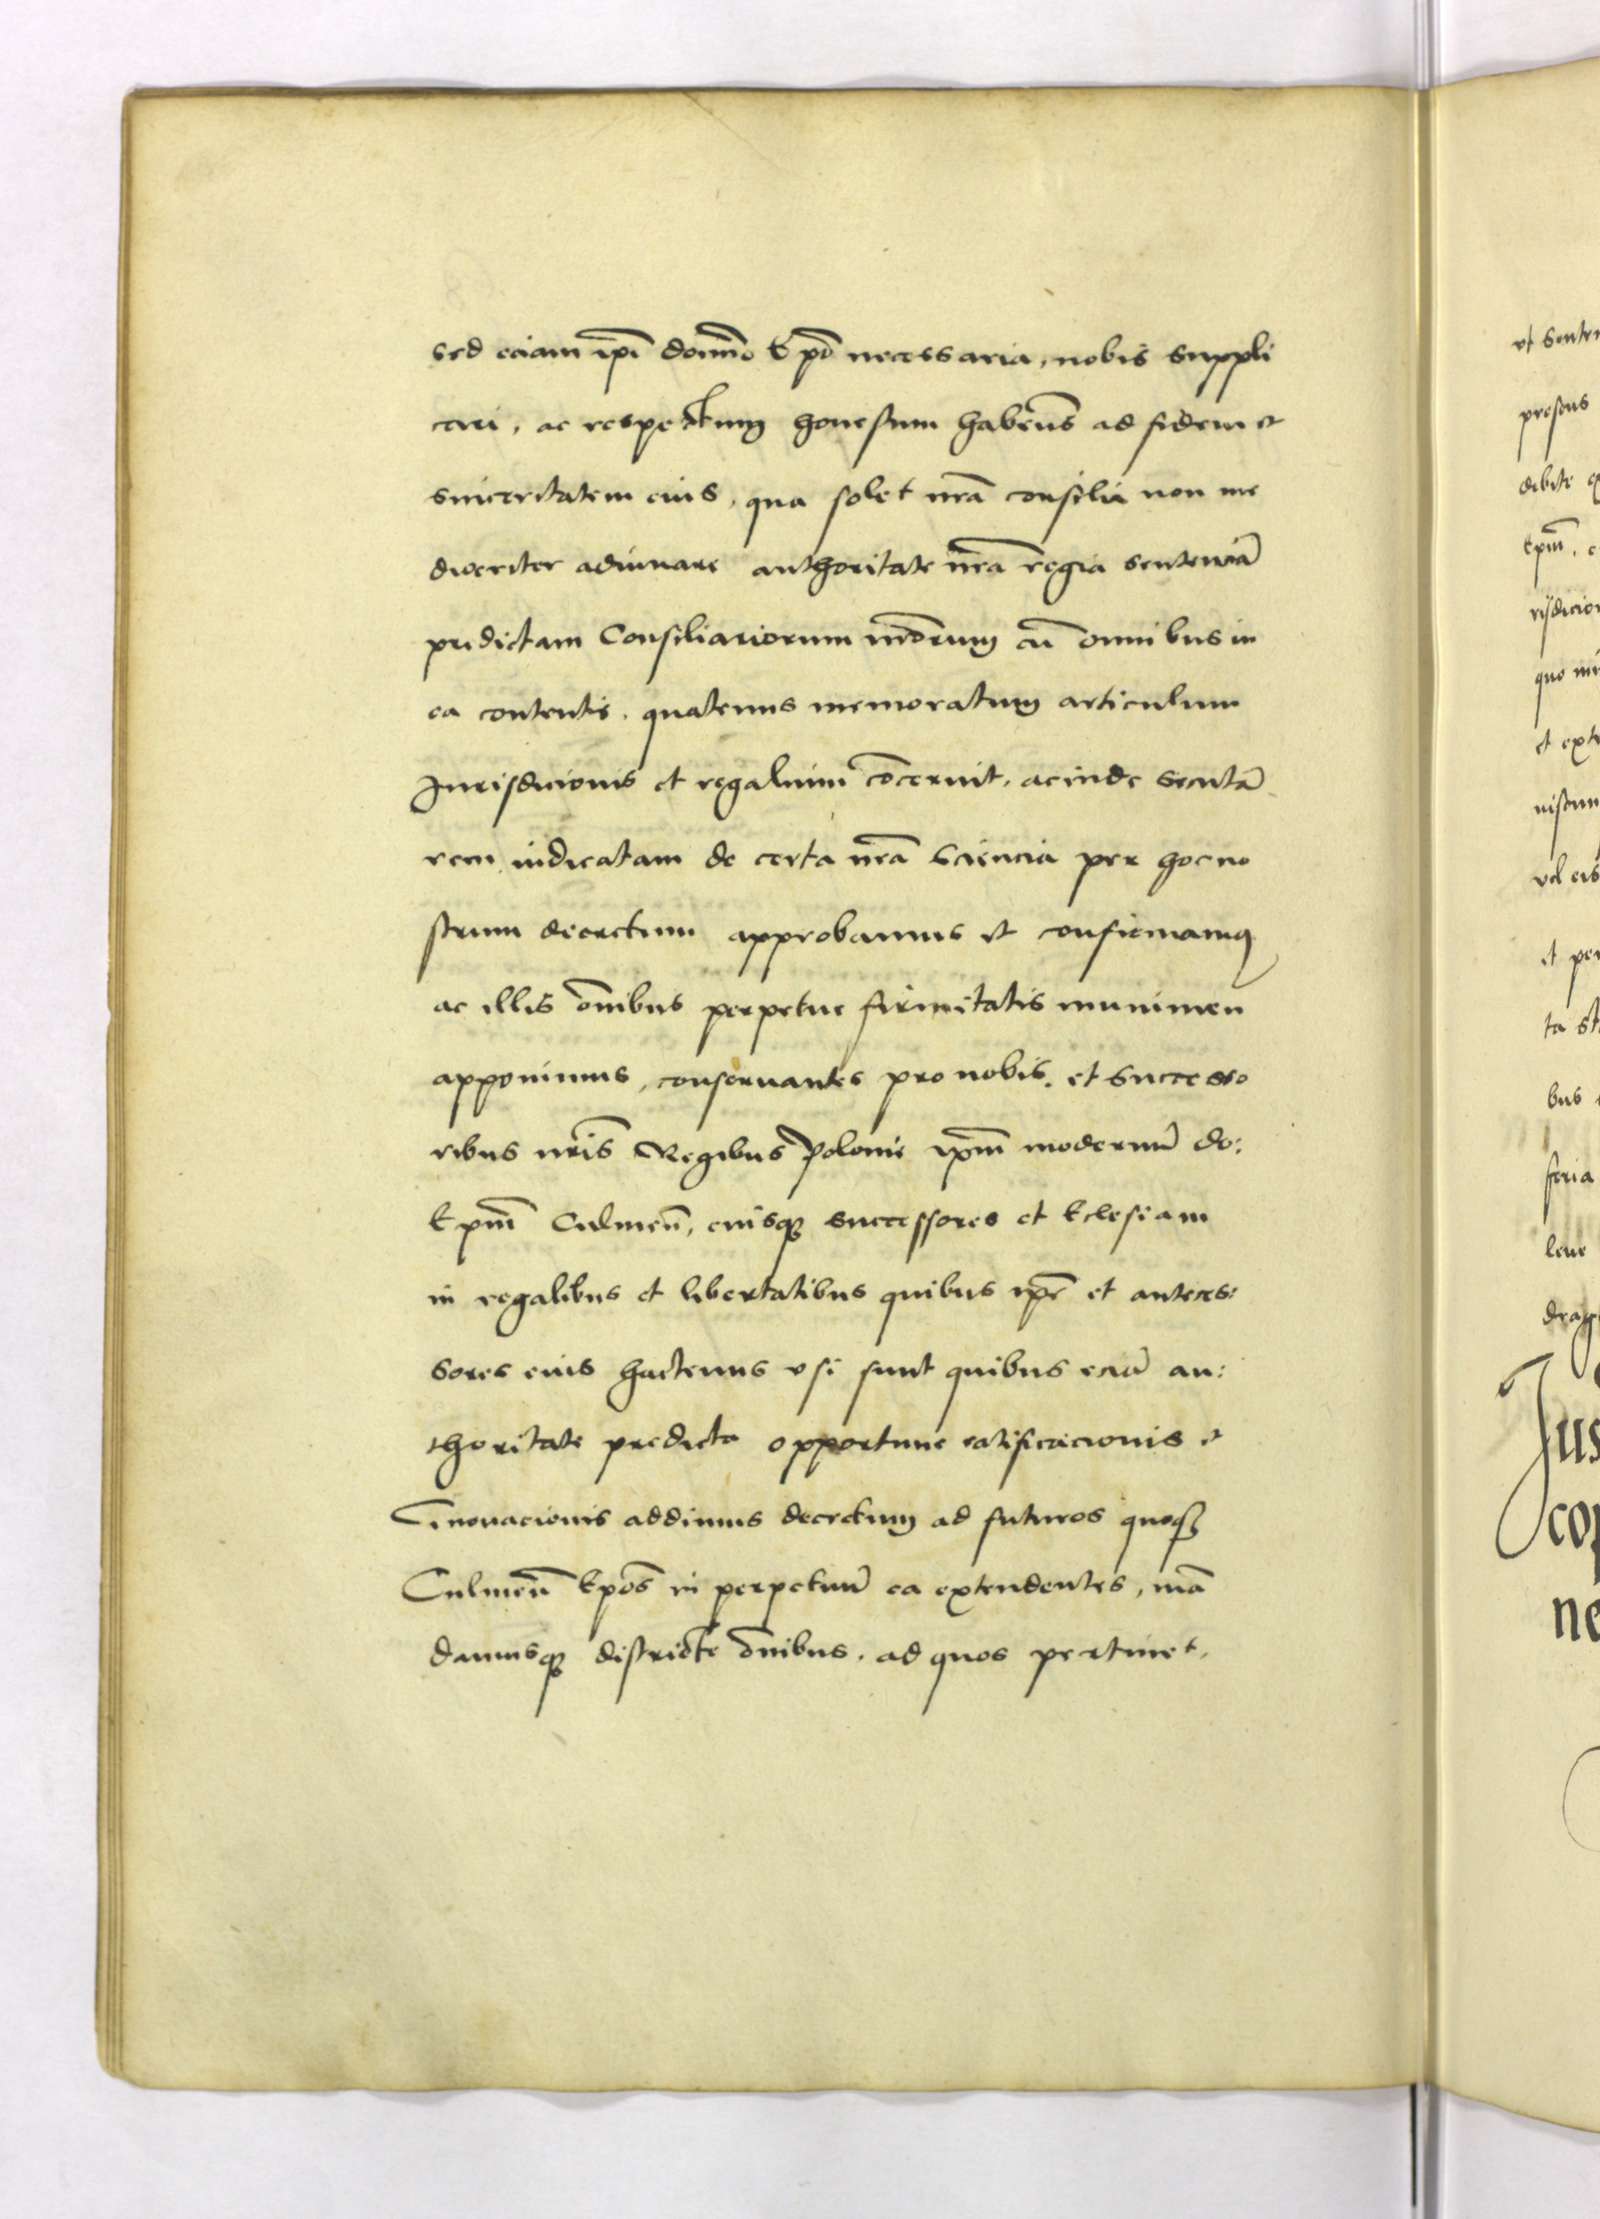 sed eciam ip̄i dom̄o Ep̄o necessaria, nobis suppli
cavi, ac respectum honestum haben̄s ad fidem et
sinceritatem eius, qua solet nr̄a consilia non me
diocriter adiuuare authoritate nr̄a regia sentenciā
predictam Consiliariorum nr̄orum cū omnibus in
ea contentis, quatenus memoratum articulum
Jurisdicionis et regalium cōcernit, ac inde secutā
rem iudicatam de certa nr̄a sciencia per hoc no
strum decretum approbamus et confirmamus
ac illis om̄ibus perpetue firmitatis munimen
apponimus, conseruantes pro nobis, et successo
ribus nr̄is Regibus Polonie ip̄m modernū do:
Ep̄m Culmen̄, eiusq; successores et Eclesiam
in regalibus et libertatibus quibus ip̄e et anteces:
sores eius hactenus vsi sunt quibus eciā au:
thoritate predicta opportune ratificacionis et
innouacionis addimus decretum ad futuros quoq;
Culmen̄ Ep̄os in perpetuū ea extendentes, mā
damusq; districte om̄ibus, ad quos pertinet,
vt senten
presens
debite
Ep̄m,
risdicion
quo mi
et extr
nistum
vel eis
et per
ta st
bus
feria
leue
drag
Jus
cop
ne